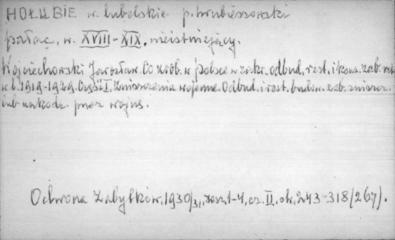 HOŁUBIE w. lubelskie p. hrubieszowski
pałac, w. XVIII-XIX, nieistniejący.
Wojciechowski Jarosław. Co zrob. w Polsce w zakr. odbud. rest. i kons. zab.
w l. 1919-1929. Część I. Zniszczenia wojenne. Odbud. i rest. budow. zab. zniszcz.
lub uszkodz. przez wojnę.
Ochrona Zabytków, 1930/31, zesz. 1-4, cz. II, ok. 243-318 (267).